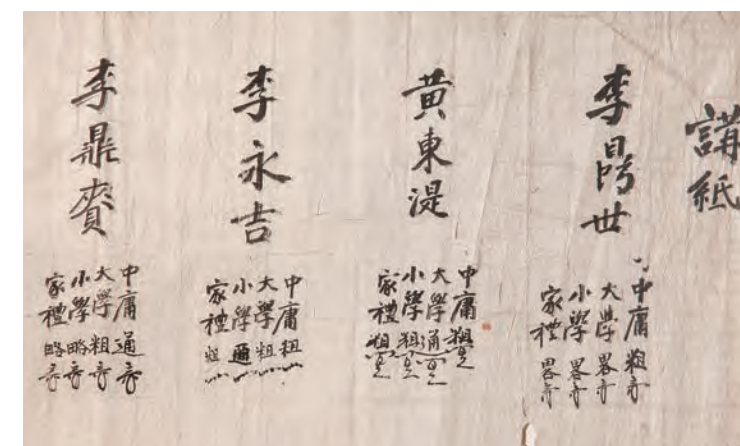 講紙
李 世
中庸 粗
大學 畧
小學 畧
家禮 畧
黄東湜
中庸 粗
大學 通
小學 粗
家禮 粗
李永吉
中庸 粗
大學 粗
小學 通
家禮 粗
李鼎賚
中庸 通
大學 粗
小學 略
家禮 略